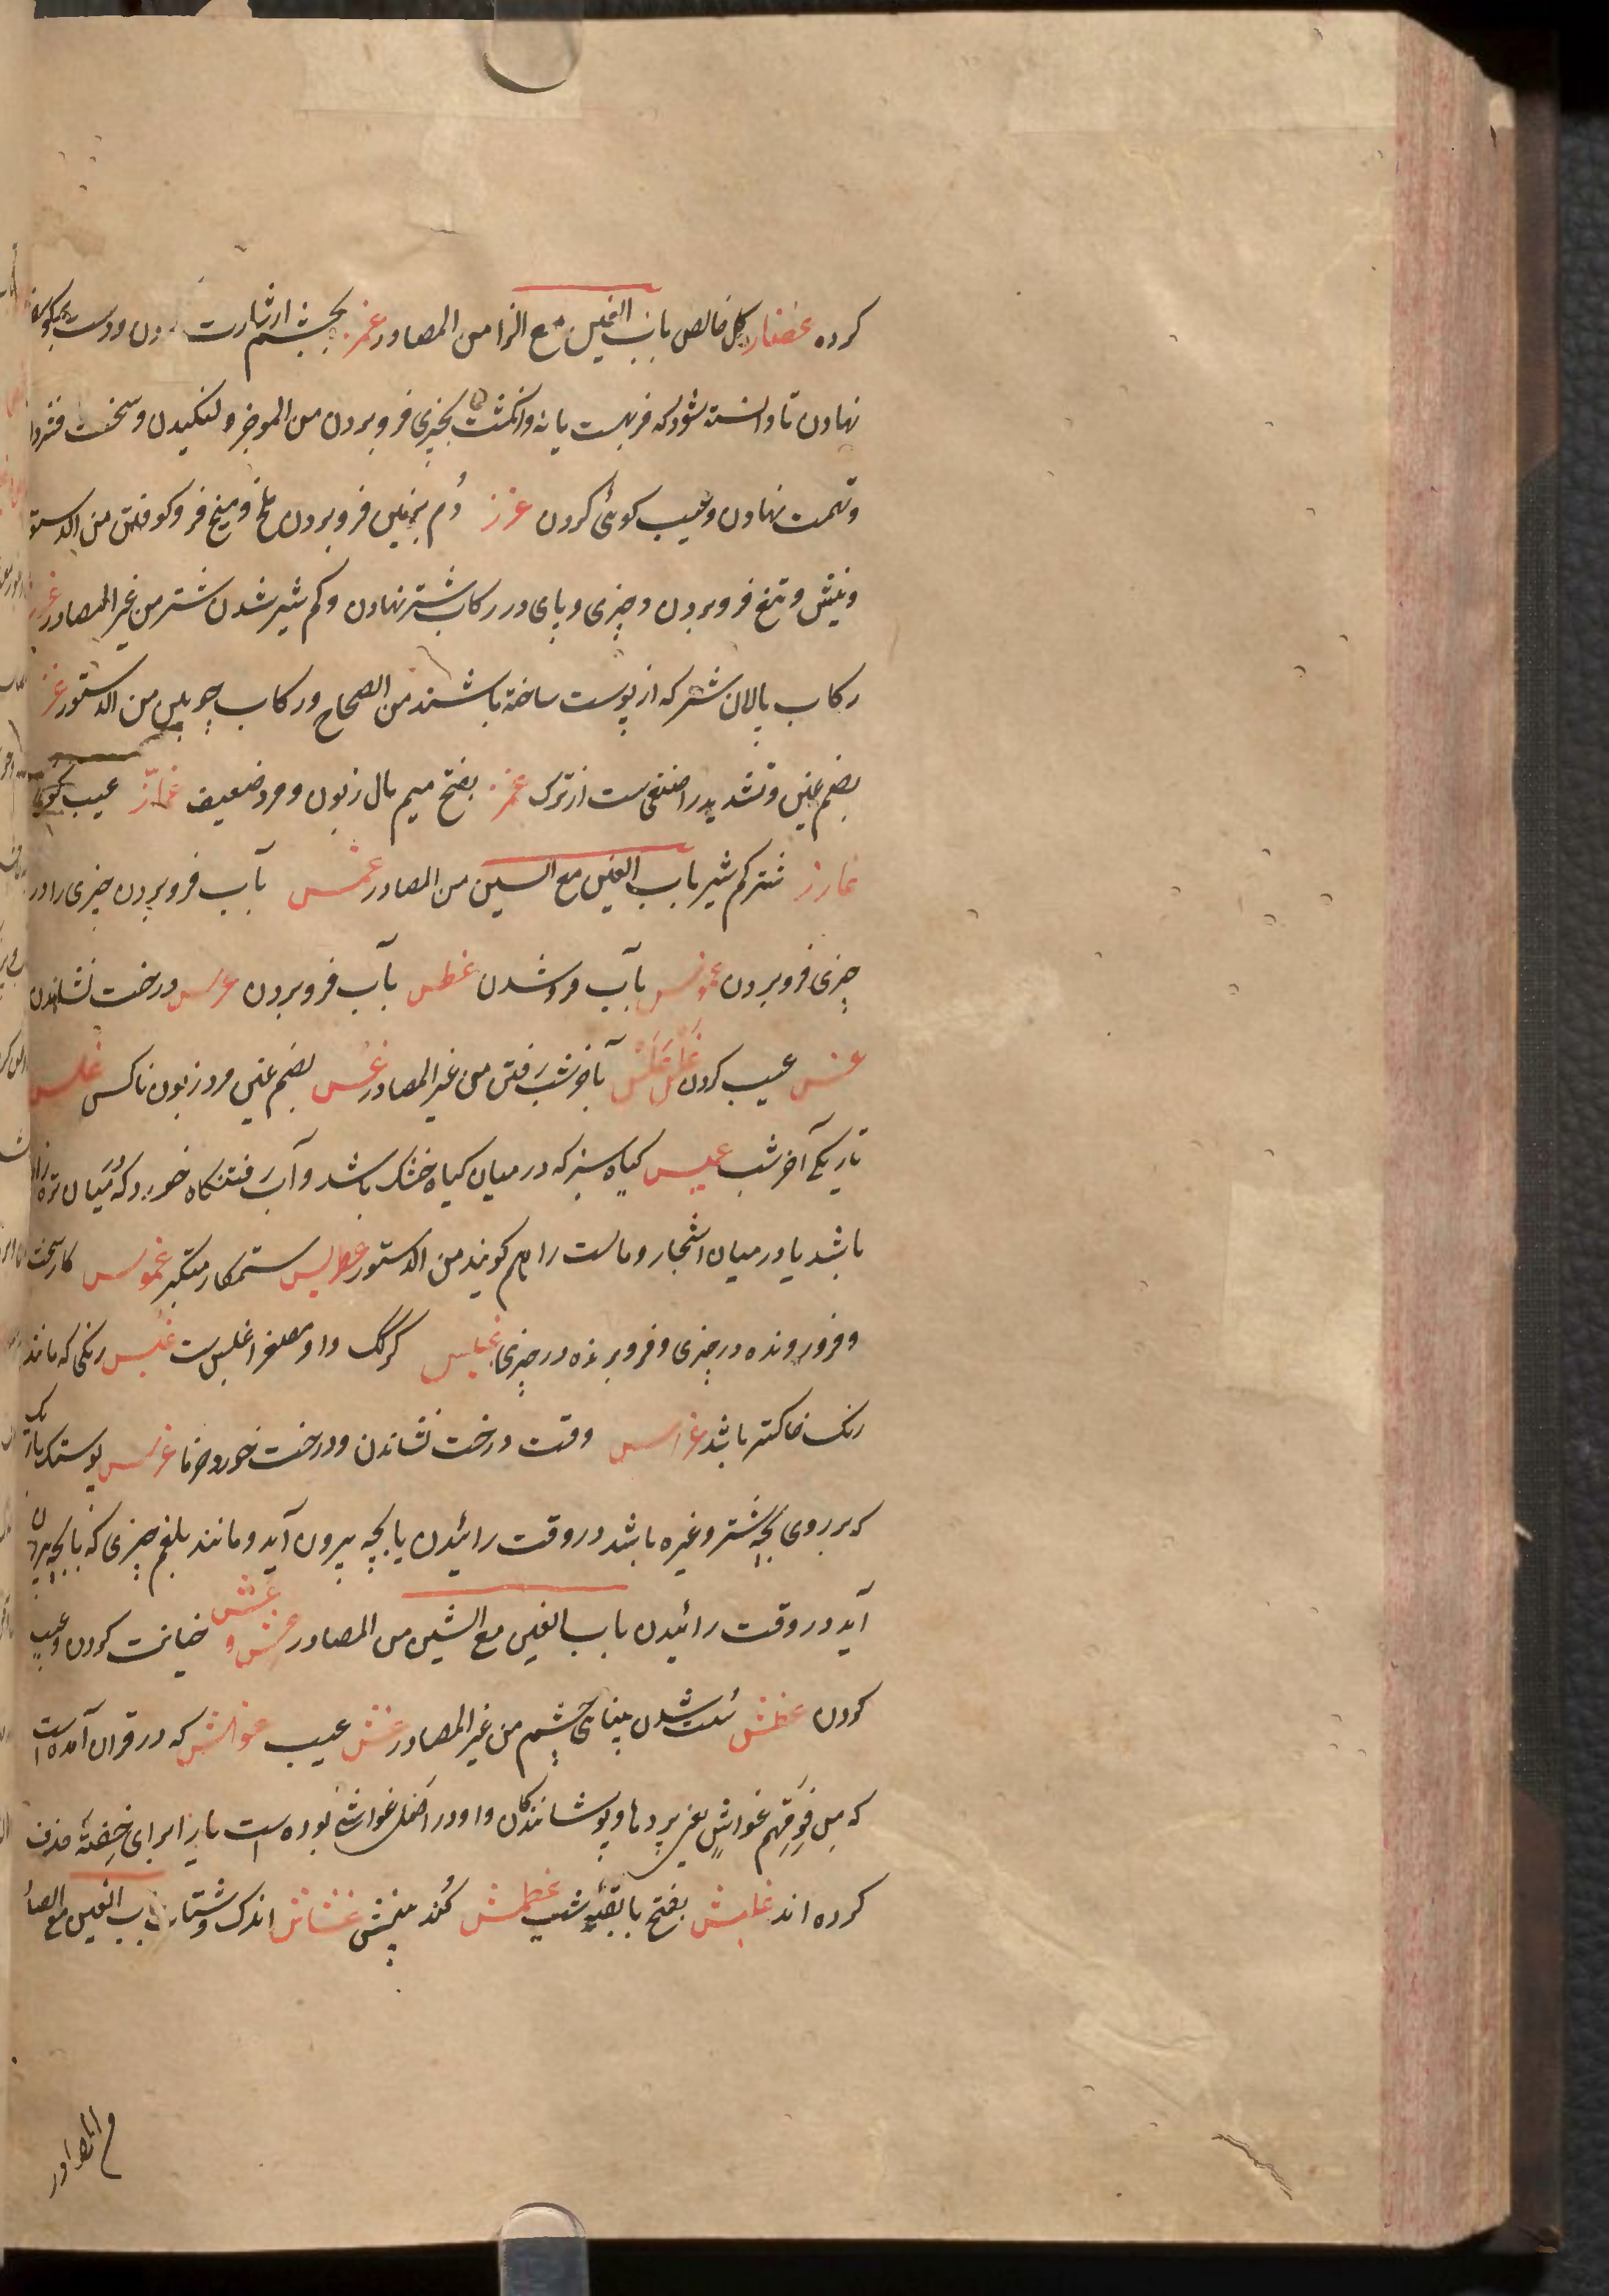 کرده غضنار کل خالص باب الغین مع الزا من المصادر غمز بچشم اشارت کردن و دست به پهلو
نهادن تا دانسته شود که فربه است یا نه و انکشت بچیزی فرو بردن من الموجز و لنکیدن و سخت فشردن
و تهمت نهادن و عیب کوئی کردن غرز دُم بزمین فرو بردن ملخ و میخ فرو کوفتن من الدستور
و نیش و تیغ فرو بردن در چیزی و پای در رکاب شتر نهادن و کم شیر شدن شتر من غیر المصادر غرز
رکاب پالان شتر که از پوست ساخته باشند من الصحاح و رکاب چوبین من الدستور غز
بضم غین و تشدید زا صنفی ست از ترک غمز بفتح میم مال زبون و مرد ضعیف غماز عیب کوی
غارز شتر کم شیر باب الغین مع السین من المصادر غمس بآب فرو بردن چیزی را در
چیزی فرو بردن غموس بآب فرو شدن غطس بآب فرو بردن غرس درخت نشاندن
غس عیب کردن غلس بآخر شب رفتن من غیر المصادر غس بضم غین مرد زبون ناکس غلس
تاریکی آخر شب غمیس کیاه سبز که در میان کیاه خشک باشد و آب رفتنکاه خورد که میان تره زار
باشد یا در میان اشجار و ماست را هم کویند من الدستور غطریس ستمکار متکبر غموس کار سخت
و فرو رونده در چیزی و فرو برنده در چیزی غبیس کرک و او مصغر اغبس ست غبس رنکی که مانند
رنک خاکستر باشد غراس وقت درخت نشاندن و درخت خورد خرما غرس پوستک باریک
که بر روی بچه شتر و غیره باشد در وقت زائیدن یا بچه بیرون آید و مانند بلغم چیزی که با بچه بیرون
آید در وقت زائیدن باب الغین مع الشین من المصادر غش و غش خیانت کردن و عیب
کردن غطش سُست شدن بینائی چشم من غیر المصادر غش عیب غواش که در قران آمده است
که من فَوقِهِم غواشٍ یعنی پردها و پوشانندکان و او در اصل غواشی بوده است یا را برای خفة حذف
کرده اند غبش بفتح با بقیه شب غطش کُند بینش غشاش اندک و شتاب باب الغین مع الصاد
من المصادر